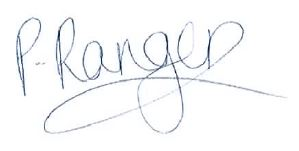 P. Ranger